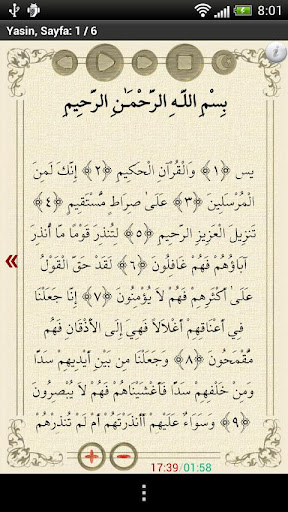 8:01
Yasin, Sayfa: 1 / 6
بِسْمِ اللَّـهِ الرَّحْمَـٰنِ الرَّحِيمِ
يس ﴿١﴾ وَالْقُرْآنِ الْحَكِيمِ ﴿٢﴾ إِنَّكَ لَمِنَ
الْمُرْسَلِينَ ﴿٣﴾ عَلَىٰ صِرَاطٍ مُّسْتَقِيمٍ ﴿٤﴾
تَنزِيلَ الْعَزِيزِ الرَّحِيمِ ﴿٥﴾ لِتُنذِرَ قَوْمًا مَّا أُنذِرَ
آبَاؤُهُمْ فَهُمْ غَافِلُونَ ﴿٦﴾ لَقَدْ حَقَّ الْقَوْلُ
عَلَىٰ أَكْثَرِهِمْ فَهُمْ لَا يُؤْمِنُونَ ﴿٧﴾ إِنَّا جَعَلْنَا
فِي أَعْنَاقِهِمْ أَغْلَالًا فَهِيَ إِلَى الْأَذْقَانِ فَهُم
مُّقْمَحُونَ ﴿٨﴾ وَجَعَلْنَا مِن بَيْنِ أَيْدِيهِمْ سَدًّا
وَمِنْ خَلْفِهِمْ سَدًّا فَأَغْشَيْنَاهُمْ فَهُمْ لَا يُبْصِرُونَ
﴿٩﴾ وَسَوَاءٌ عَلَيْهِمْ أَأَنذَرْتَهُمْ أَمْ لَمْ تُنذِرْهُمْ
17:39/01:58